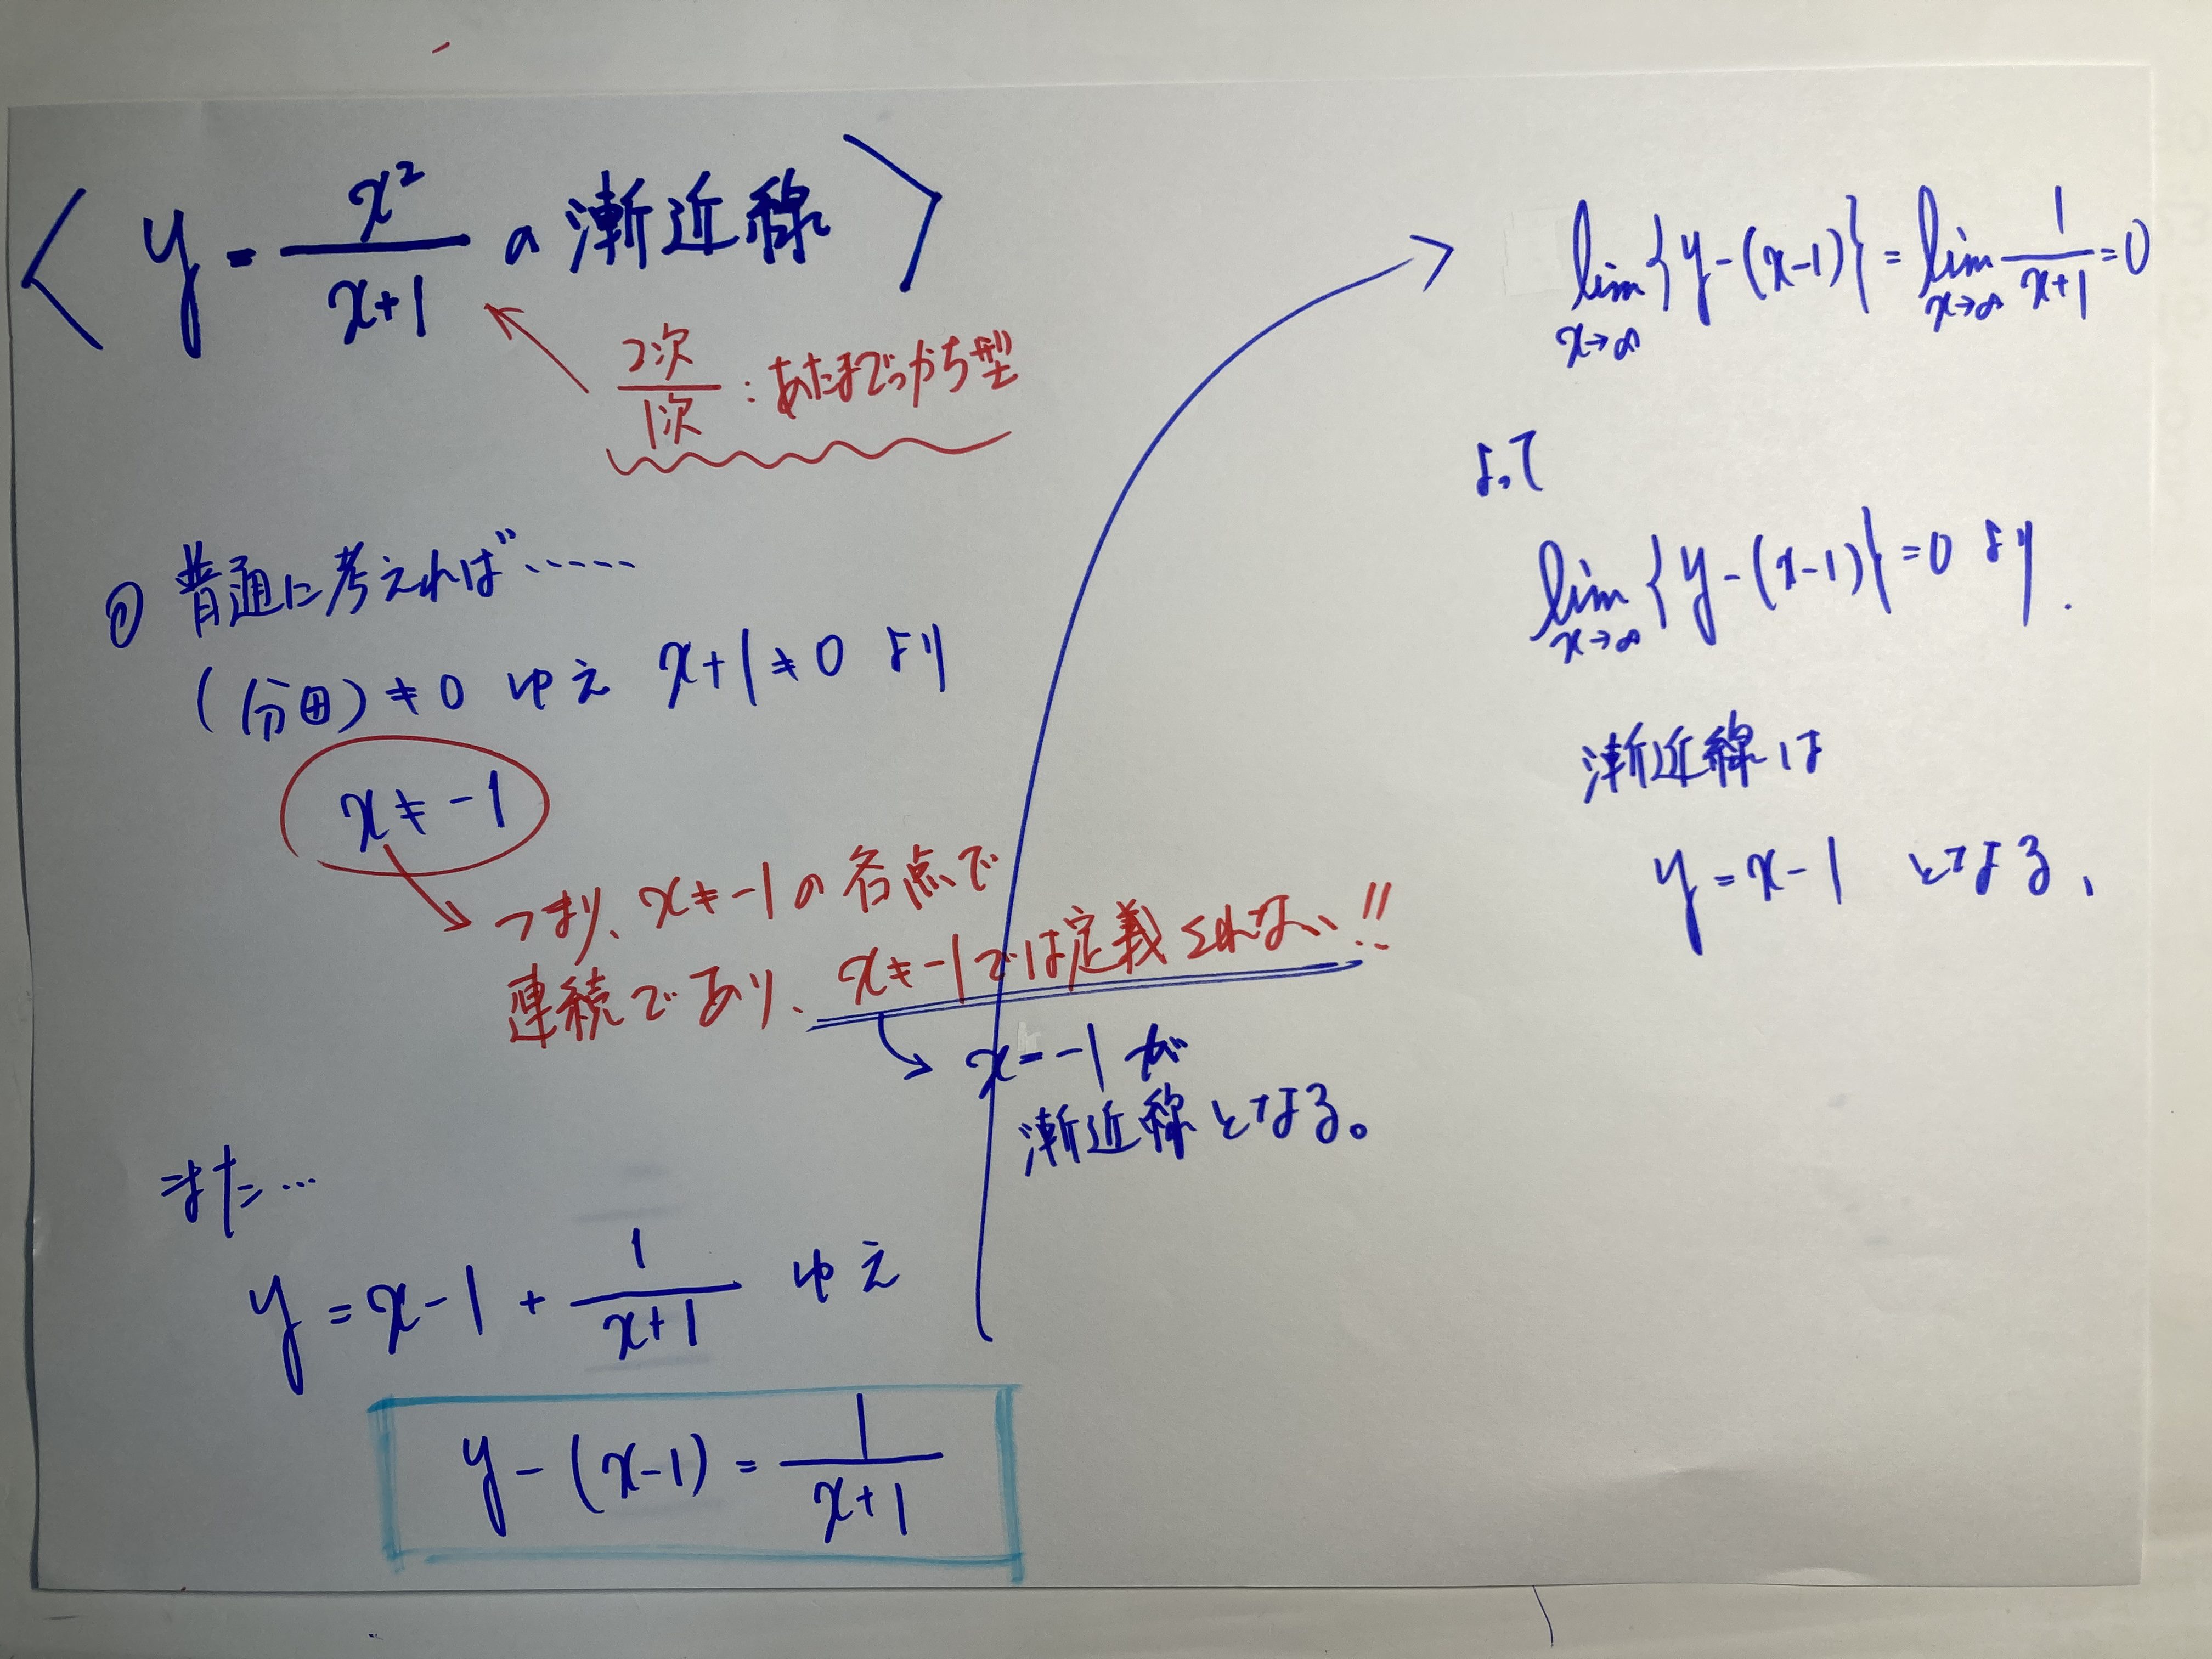 〈 y = x²/(x+1) の漸近線 〉
2次/1次 : あたまでっかち型
① 普通に考えれば……
(分母) ≠ 0 ゆえ x+1 ≠ 0 より
x ≠ -1
つまり、x ≠ -1 の各点で
連続であり、x ≠ -1 では定義されない!!
x = -1 が
漸近線となる。
また…
y = x-1 + 1/(x+1) ゆえ
y - (x-1) = 1/(x+1)
lim x→∞ {y-(x-1)} = lim x→∞ 1/(x+1) = 0
よって
lim x→∞ {y-(x-1)} = 0 より.
漸近線は
y = x-1 となる、